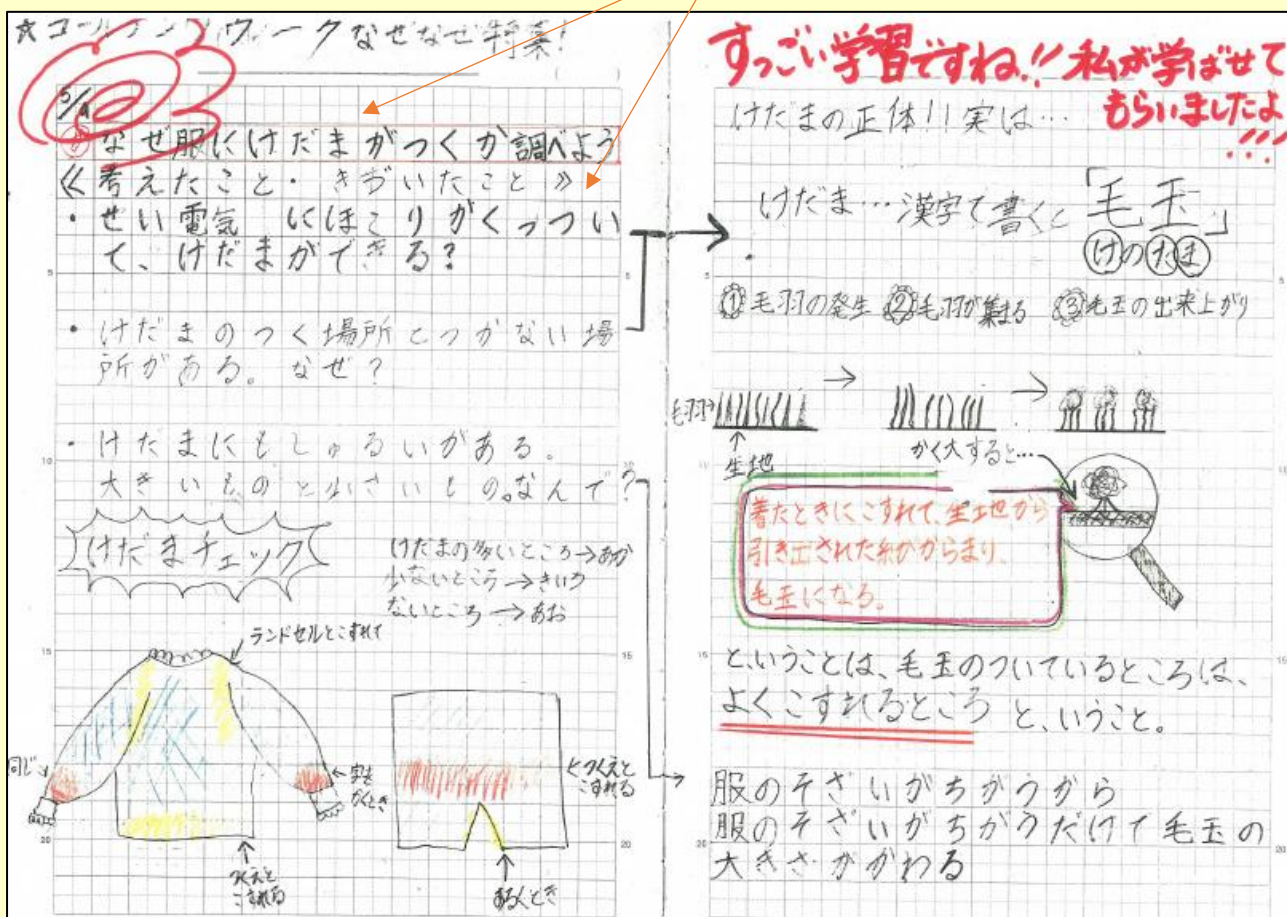 ☆ゴールデンウィークなぜなぜ特集!
5/4
め なぜ服にけだまがつくか調べよう
《考えたこと・きづいたこと》
・せい電気にほこりがくっつい
て、けだまができる?
・けだまのつく場所とつかない場
所がある。なぜ?
・けだまにもしゅるいがある。
大きいものと小さいもの。なんで?
けだまチェック
けだまの多いところ→あか
少ないところ→きいろ
ないところ→あお
ランドセルとこすれて
同じ
字を
かくとき
つくえと
こすれる
つくえと
こすれる
あるくとき
すっごい学習ですね!!私が学ばせて
もらいましたよ
!!!
けだまの正体!!実は…
けだま…漢字で書くと「毛玉」
けのたま
①毛羽の発生 ②毛羽が集まる ③毛玉の出来上がり
毛羽→
生地
かく大すると…
着たときにこすれて、生地から
引き出された糸がからまり、
毛玉になる。
と、いうことは、毛玉のついているところは、
よくこすれるところ と、いうこと。
服のそざいがちがうから
服のそざいがちがうだけで毛玉の
大きさがかわる
5
10
15
20
5
10
15
20